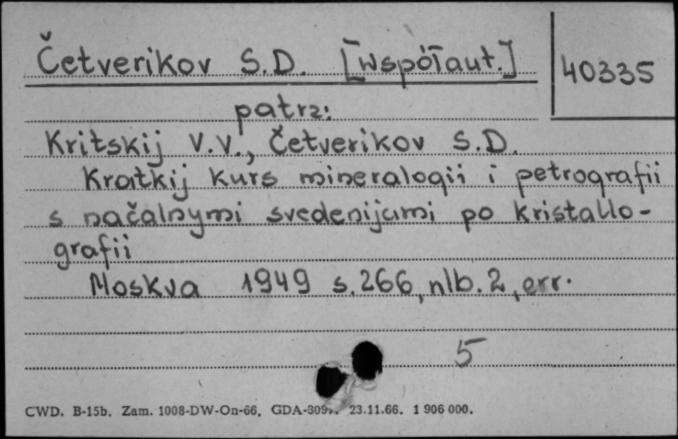 Četverikov S.D. [współaut.]
40335
patrz:
Kritskij V.V., Četverikov S.D.
Kratkij kurs mineralogii i petrografii
s načalnymi svedenijami po kristallo-
grafii
Moskva 1949 s.266, nlb.2, err.
5
CWD. B-15b. Zam. 1008-DW-On-66. 23.11.66. 1 906 000.